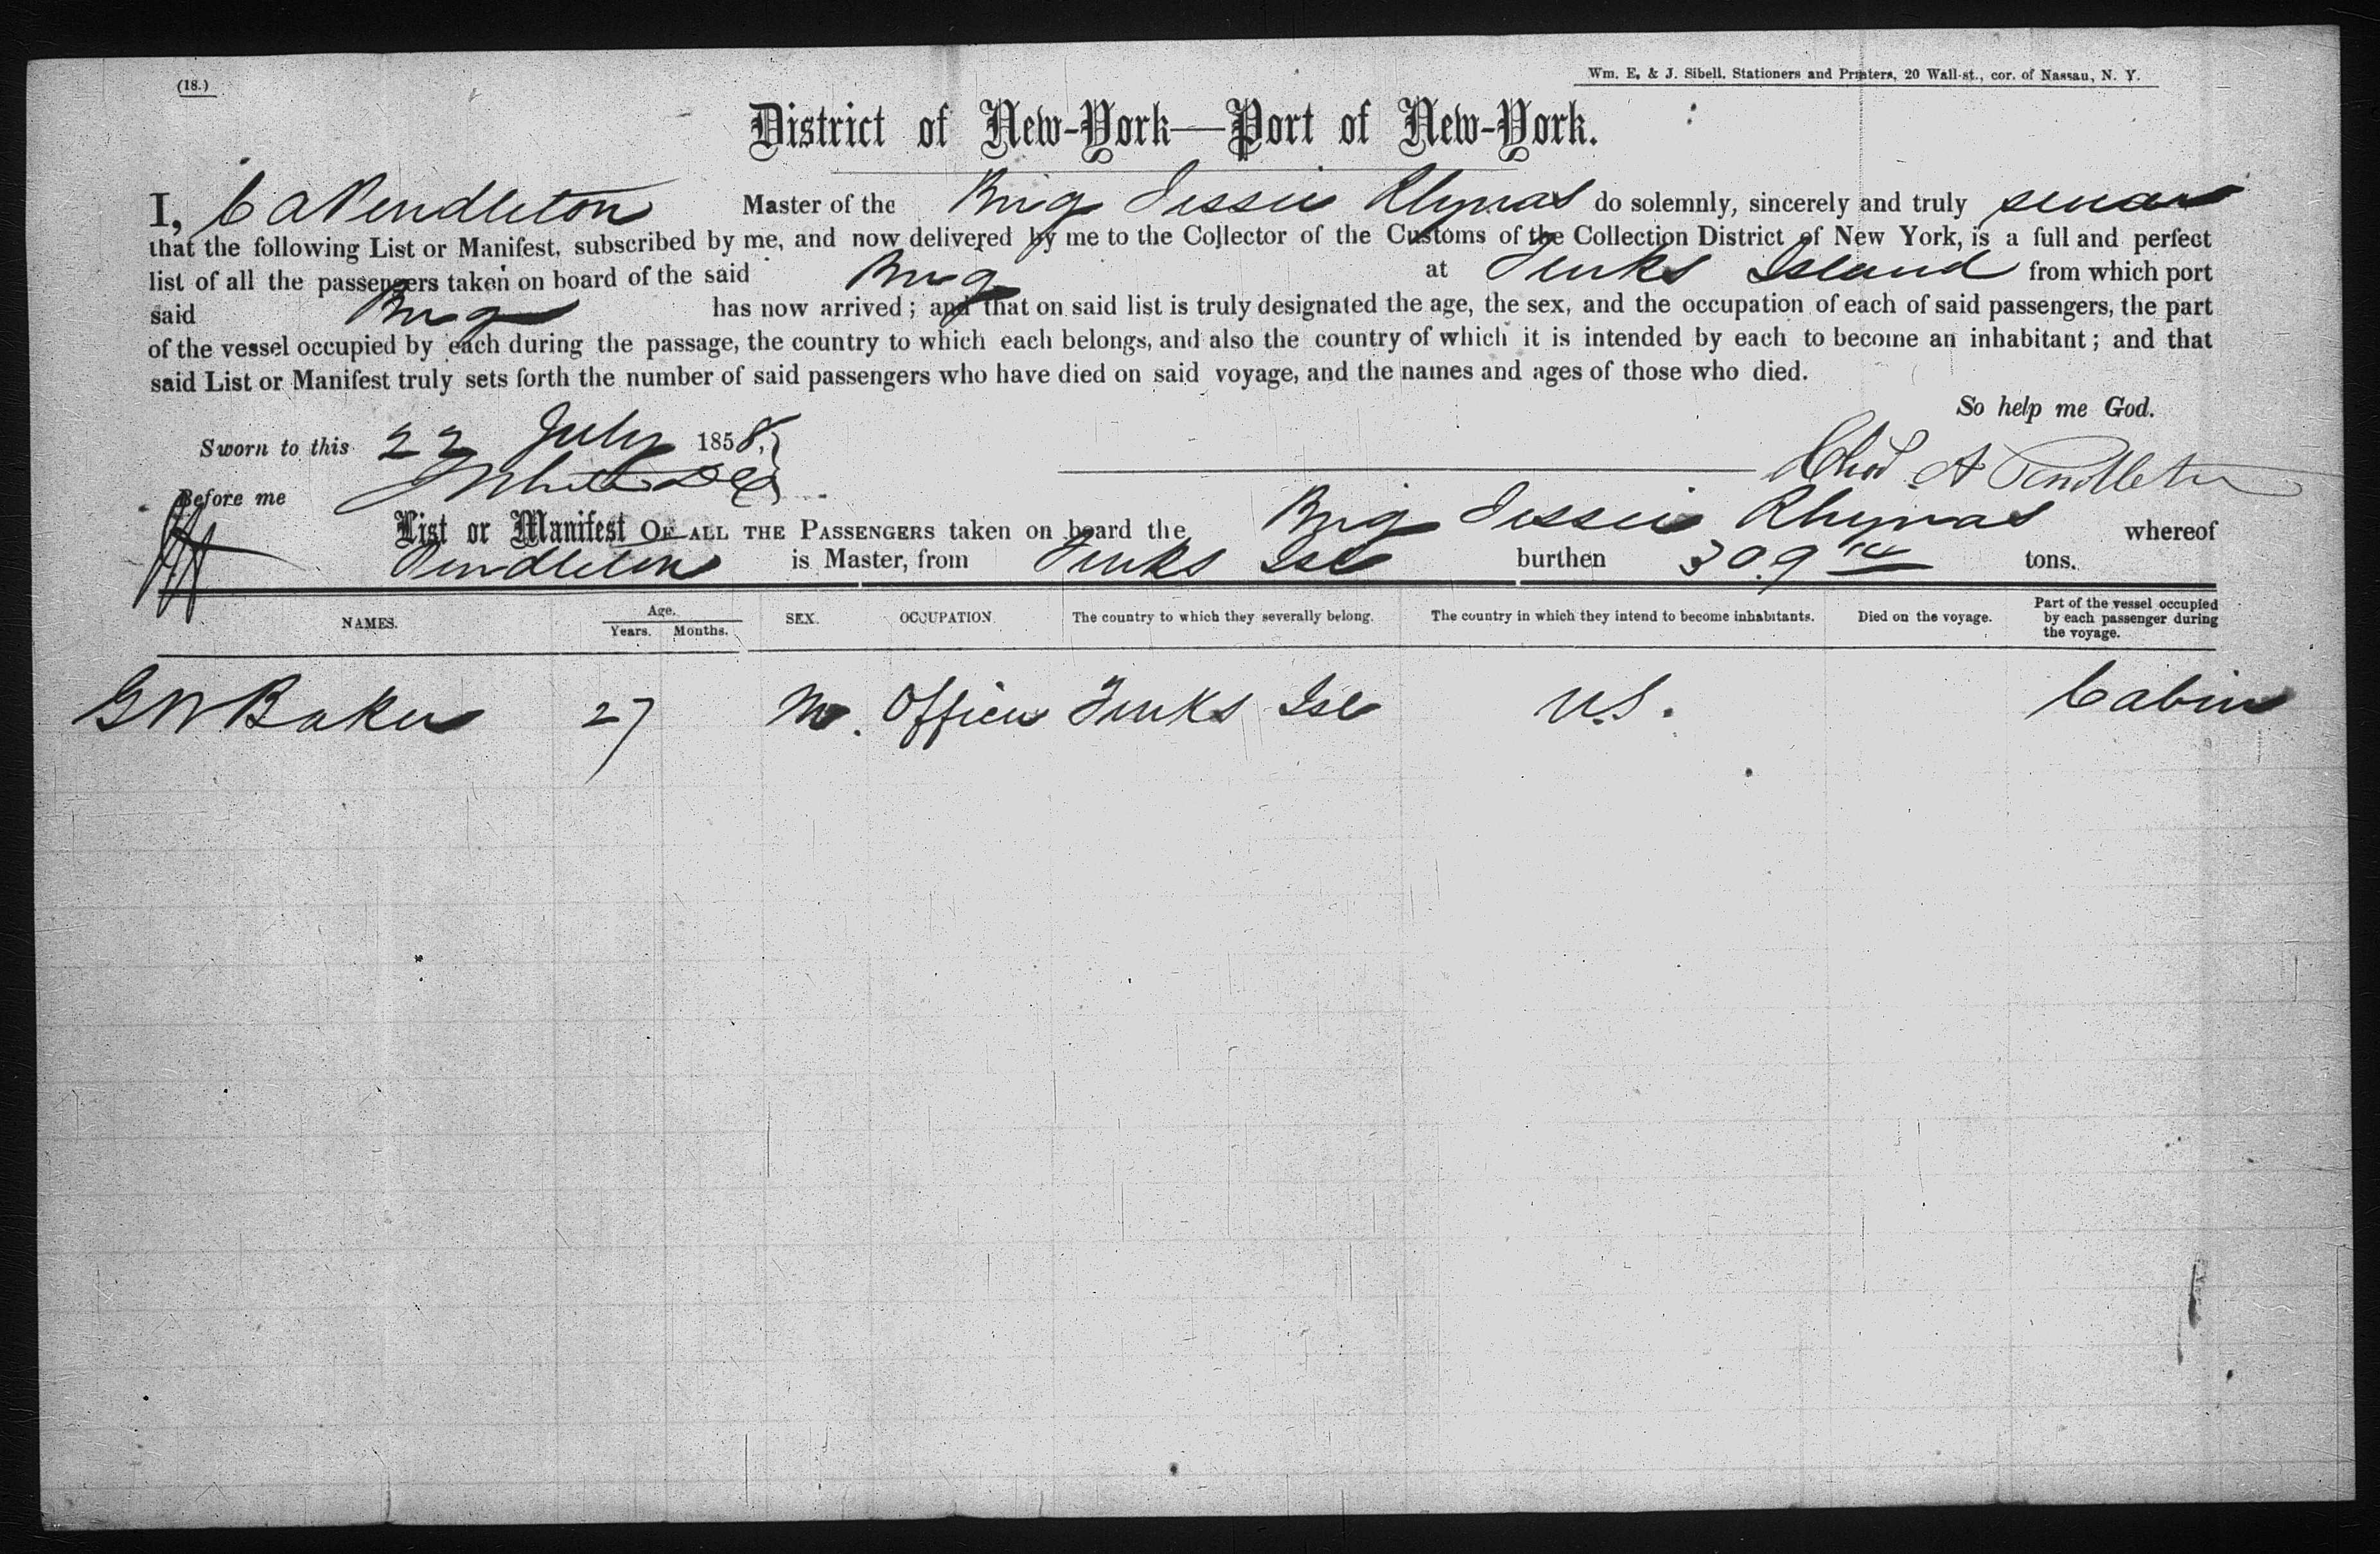 (18.)
Wm. E. & J. Sibell, Stationers and Printers, 20 Wall-st., cor. of Nassau, N. Y.
District of New-York—Port of New-York.
I, C A Pendleton Master of the Brig Jessie Rhynas do solemnly, sincerely and truly swear
that the following List or Manifest, subscribed by me, and now delivered by me to the Collector of the Customs of the Collection District of New York, is a full and perfect
list of all the passengers taken on board of the said Brig at Turks Island from which port
said Brig has now arrived; and that on said list is truly designated the age, the sex, and the occupation of each of said passengers, the part
of the vessel occupied by each during the passage, the country to which each belongs, and also the country of which it is intended by each to become an inhabitant; and that
said List or Manifest truly sets forth the number of said passengers who have died on said voyage, and the names and ages of those who died.
So help me God.
Sworn to this 22 July 1858.
Chas A Pendleton
Before me
List or Manifest OF ALL THE PASSENGERS taken on board the Brig Jessie Rhynas whereof
Pendleton is Master, from Turks Isl burthen 309 tons.
NAMES. Age. Years. Months. SEX. OCCUPATION. The country to which they severally belong. The country in which they intend to become inhabitants. Died on the voyage. Part of the vessel occupied by each passenger during the voyage.
G W Baker 27 M. Officer Turks Isl U.S. Cabin